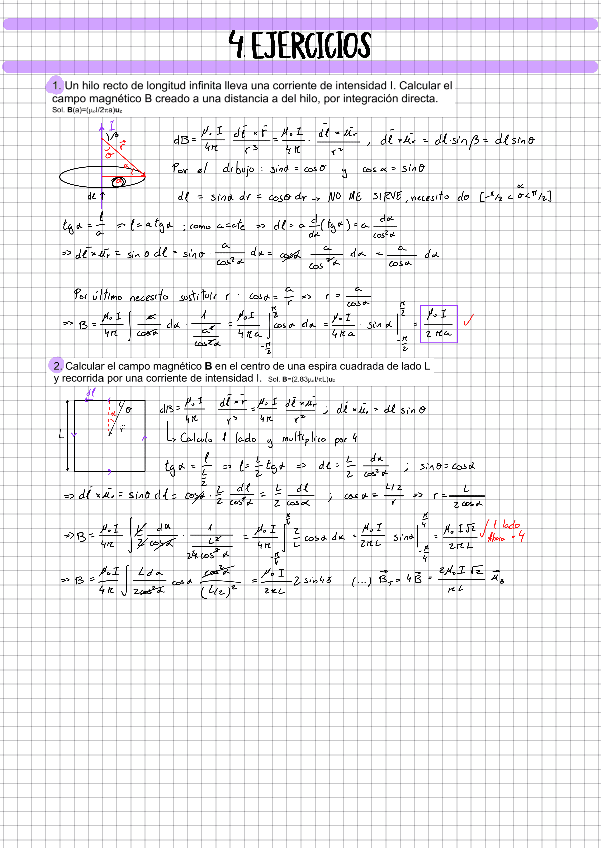 4. EJERCICIOS
1. Un hilo recto de longitud infinita lleva una corriente de intensidad I. Calcular el
campo magnético B creado a una distancia a del hilo, por integración directa.
Sol. B(a)=(μ₀I/2πa)u
dB = μ₀ I / 4π · dl × r / r³ = μ₀ I / 4π · dl × ur / r² ; dl × ur = dl · sin β = dl sin θ
Por el dibujo: sin α = cos θ y cos α = sin θ
dl = sin α dr = cos θ dr → NO ME SIRVE, necesito dα [-π/2 < θ < π/2]
tg α = l/a ⇒ l = a tg α ; como a = cte ⇒ dl = a d/dα (tg α) = a dα/cos² α
⇒ dl × ur = sin θ dl = sin θ a/cos² α dα = cos α a/cos² α dα = a/cos α dα
Por último necesito sustituir r : cos α = a/r ⇒ r = a/cos α
⇒ B = μ₀ I/4π ∫ a/cos α dα · 1/(a²/cos² α) = μ₀ I/4πa ∫ cos α dα = μ₀ I/4πa · sin α = μ₀ I/2πa ✓
2. Calcular el campo magnético B en el centro de una espira cuadrada de lado L
y recorrida por una corriente de intensidad I. Sol. B=(2.83μ₀I/πL)u
dB = μ₀ I/4π dl × r/r³ = μ₀ I/4π dl × ur/r² ; dl × ur = dl sin θ
↳ Calculo 1 lado y multiplico por 4
tg α = l/(L/2) ⇒ l = L/2 tg α ⇒ dl = L/2 dα/cos² α ; sin θ = cos α
⇒ dl × ur = sin θ dl = cos α · L/2 dl/cos² α = L/2 dl/cos α ; cos α = (L/2)/r ⇒ r = L/2cos α
⇒ B = μ₀ I/4π ∫ L dα/2 cos α · 1/(L²/24 cos² α) = μ₀ I/4π ∫ 2/L cos α dα = μ₀ I/2πL sin α = μ₀ I √2/2πL ✓ 1 lado
Ahora · 4
⇒ B = μ₀ I/4π ∫ L dα/2cos² α cos α cos² α/(L/2)² = μ₀ I/2πL 2 sin 45 (...) BT = 4B = 2μ₀ I √2/πL